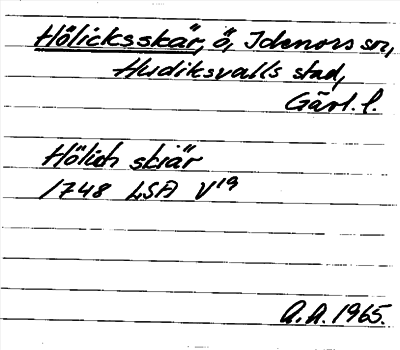 Hölicksskär, ö, Idenors sn,
Hudiksvalls stad,
Gävl. l.
Hölich skiär
1748 LSA V19
A.A. 1965.